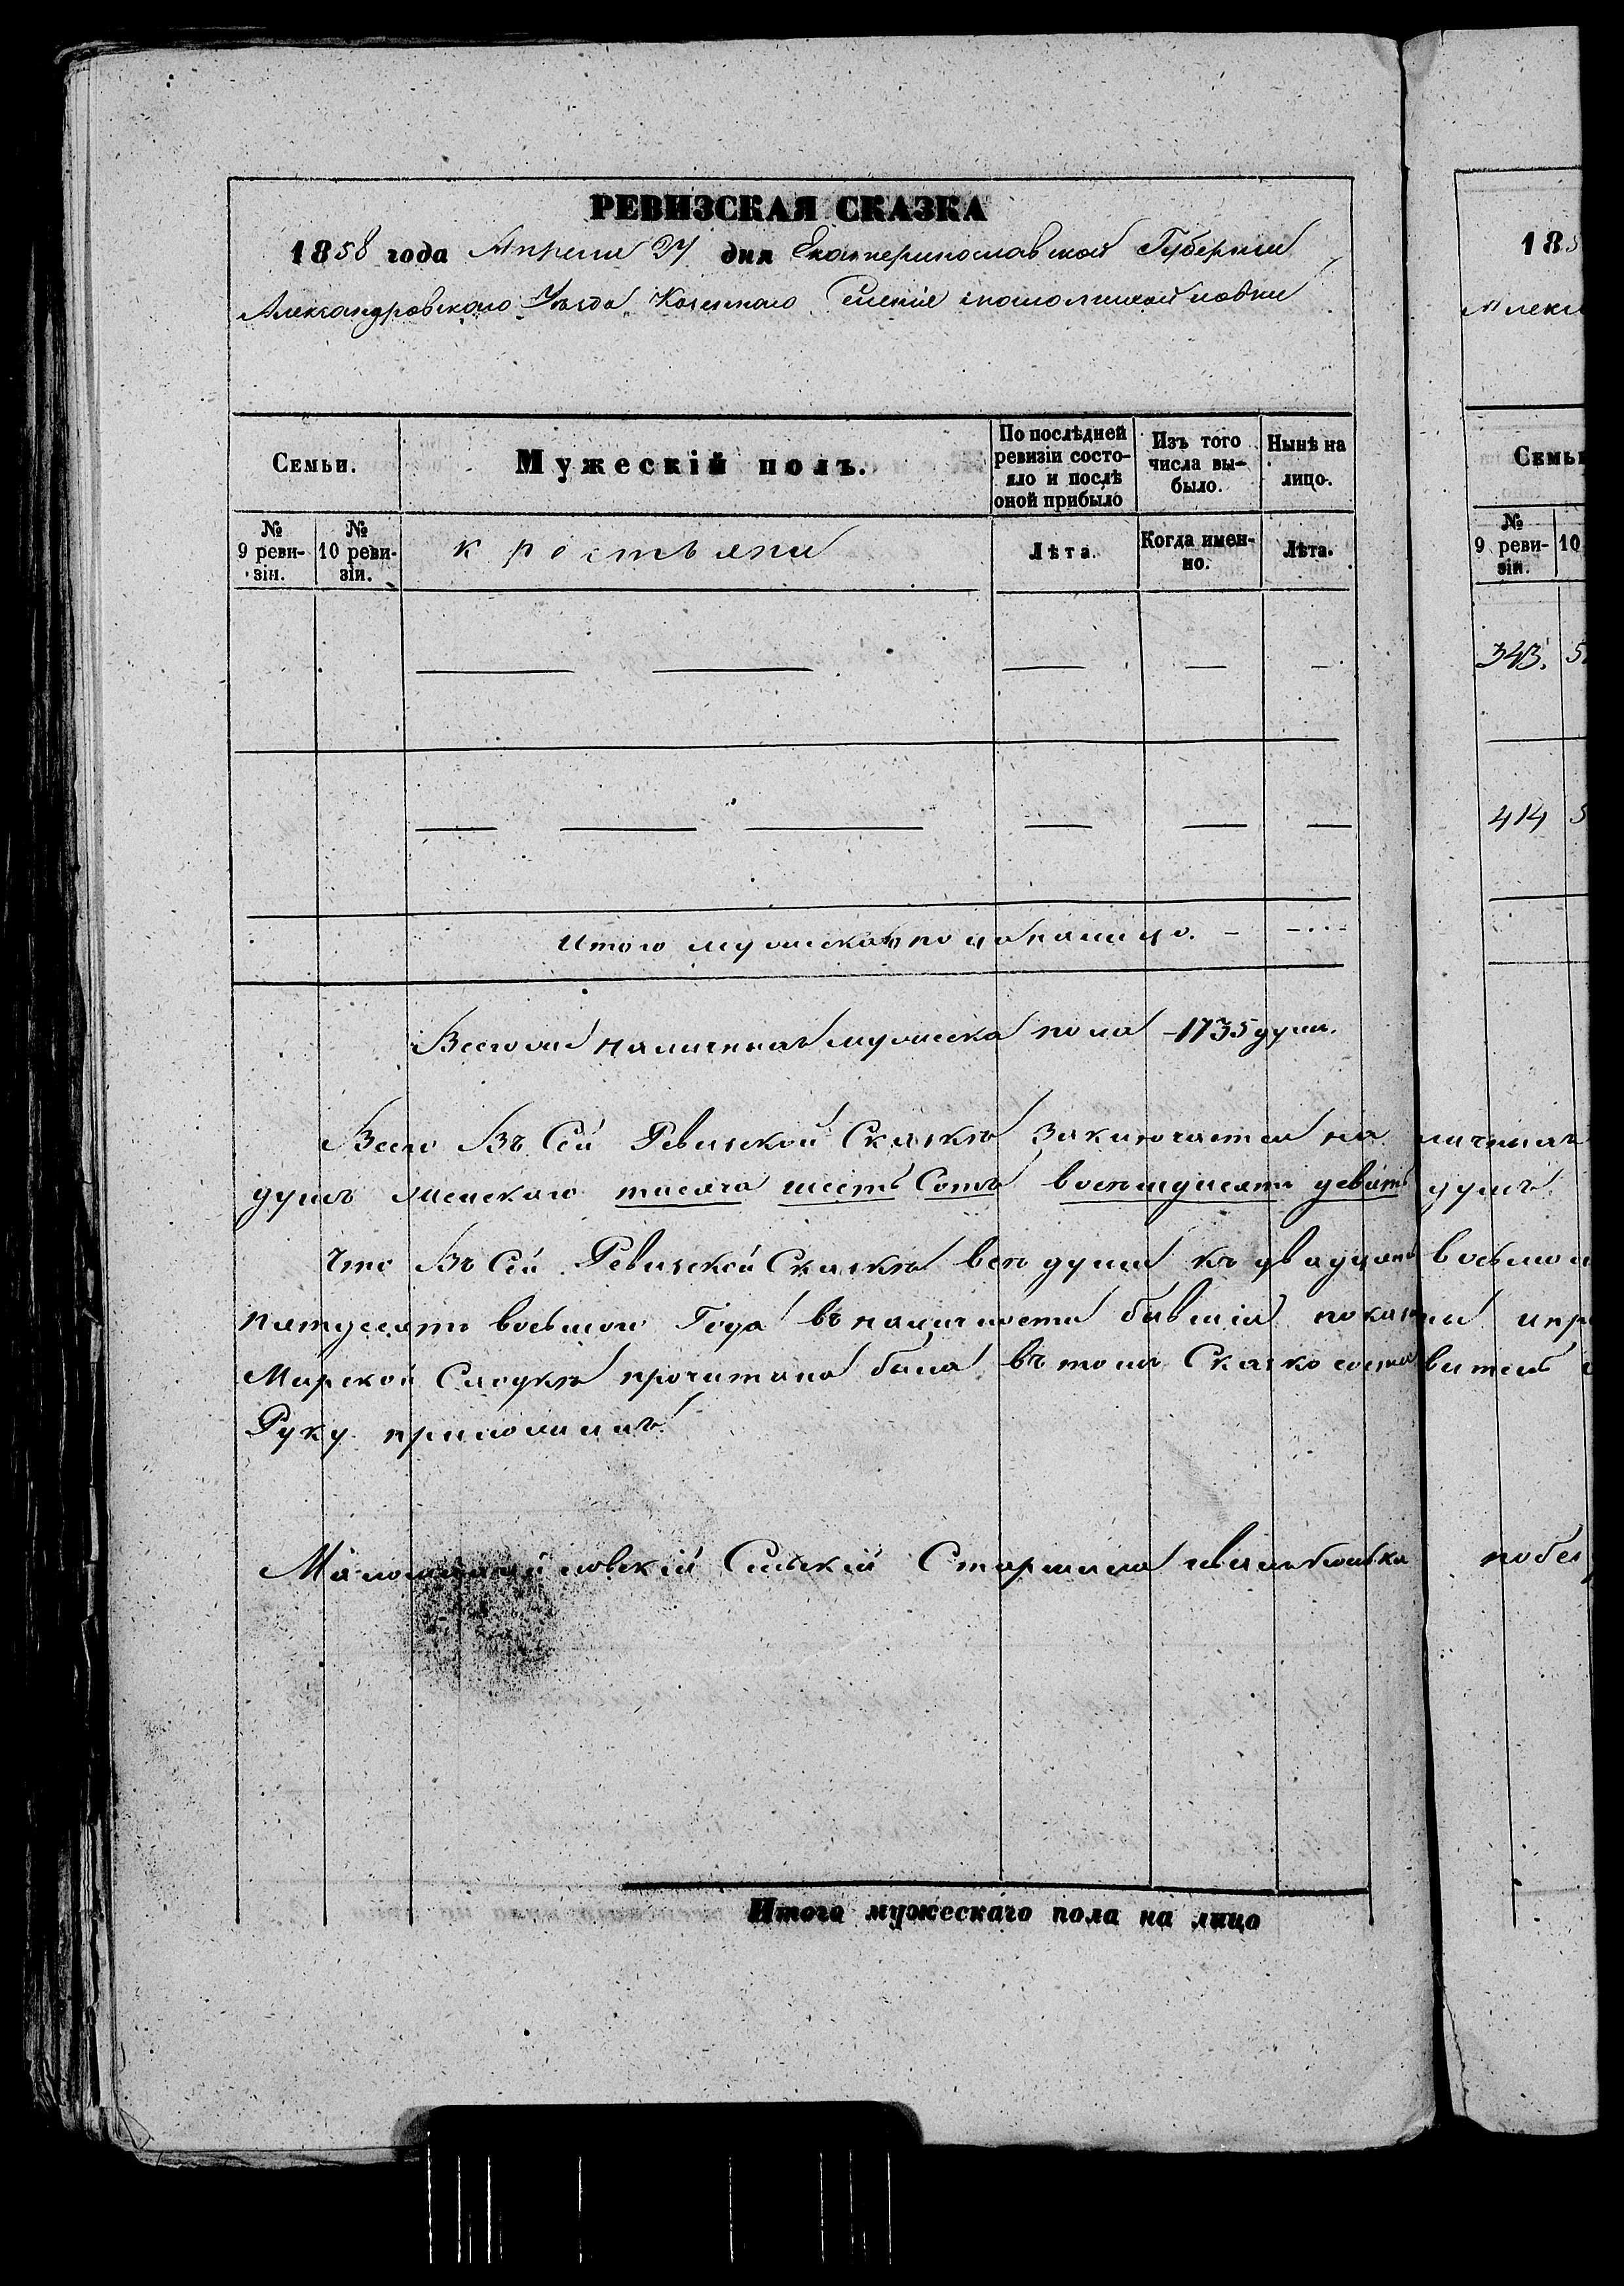 РЕВИЗСКАЯ СКАЗКА
1858 года Апреля 27 дня Екатеринославской Губернии
Александровского Уѣзда Казенного Селенія
Семьи.
Мужескій полъ.
По послѣдней ревизіи состояло и послѣ оной прибыло
Изъ того числа выбыло.
Нынѣ на лицо.
№ 9 ревизіи.
№ 10 ревизіи.
крестьяни
Лѣта.
Когда именно.
Лѣта.
Итого мужеска пола налицо.
Всего наличнаъ мужеска пола - 1735 душ.
Всего Въ Сей Ревизкой Сказкѣ заключается на личнихъ
душъ женскаго тисяча шестъ Сотъ восемдисятъ девятъ душъ.
Что Въ Сей Ревизкой Сказкѣ всѣ души къ двадцать восьмом
пятдесятъ восьмого Года въ наличности бившія показани и пр
Мирской Сходкѣ прочитана била въ томъ Сказко составитель
Руку приложилъ
Сельскій Старшина
Итого мужескаго пола на лицо
18
Алекс
Семьи
№ 9 ревизіи.
10
343. 5
414 5